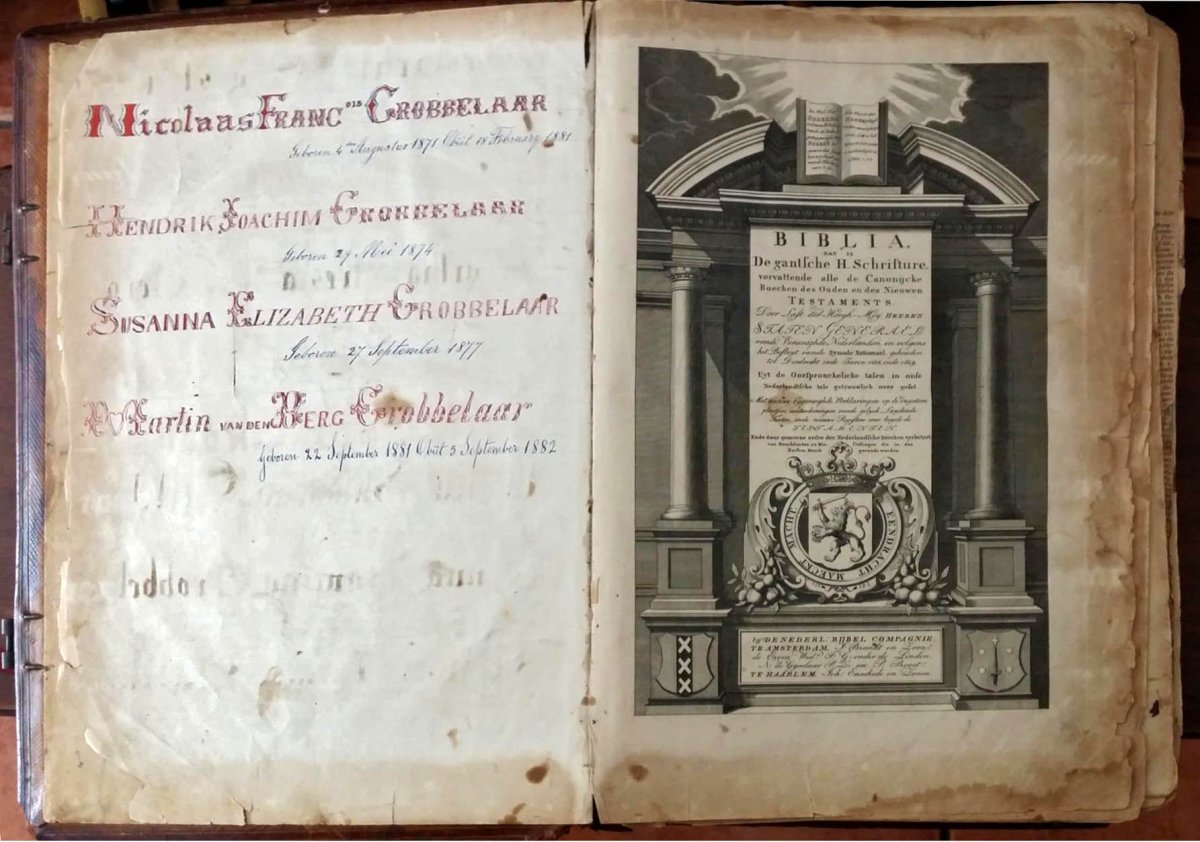 Nicolaas Franc^ois Grobbelaar
Geboren 4^de Augustus 1871 Obiit 18 February 1881
Hendrik Joachim Grobbelaar
Geboren 29 Mei 1874
Susanna Elizabeth Grobbelaar
Geboren 27 September 1877
Martin van den Berg Grobbelaar
Geboren 22 September 1881 Obiit 5 September 1882
BIBLIA,
DAT IS
De gantsche H. Schrifture,
vervattende alle de Canonijcke
Boecken des Ouden en des Nieuwen
TESTAMENTS.
Door Last der Hoogh-Mog HEEREN
STATEN GENERAEL
vande Vereenighde Nederlanden, en volgens
het Besluyt vande Synode Nationael, gehouden
tot Dordrecht inde Jaren 1618 ende 1619.
Uyt de Oorspronckelicke talen in onse
Nederlandtsche tale getrouwlijck over geset
Met nieuwe bygevoeghde Verklaringen op de duystere
plaetsen, aenteeckeningen vande gelyck-luydende
Texten, ende nieuwe Registers over beyde de
TESTAMENTEN
Ende door gemeene ordre der Nederlandtsche kercken verbetert
van en in den
Eersten Druck
EENDRACHT MAECKT MACHT
by DE NEDERL. BIJBEL COMPAGNIE.
TE AMSTERDAM, J. Brandt en Zoon
de Erven Wed. G. onder de Linden.
en P. Proost.
TE HAARLEM Joh. Enschedé en Zonen